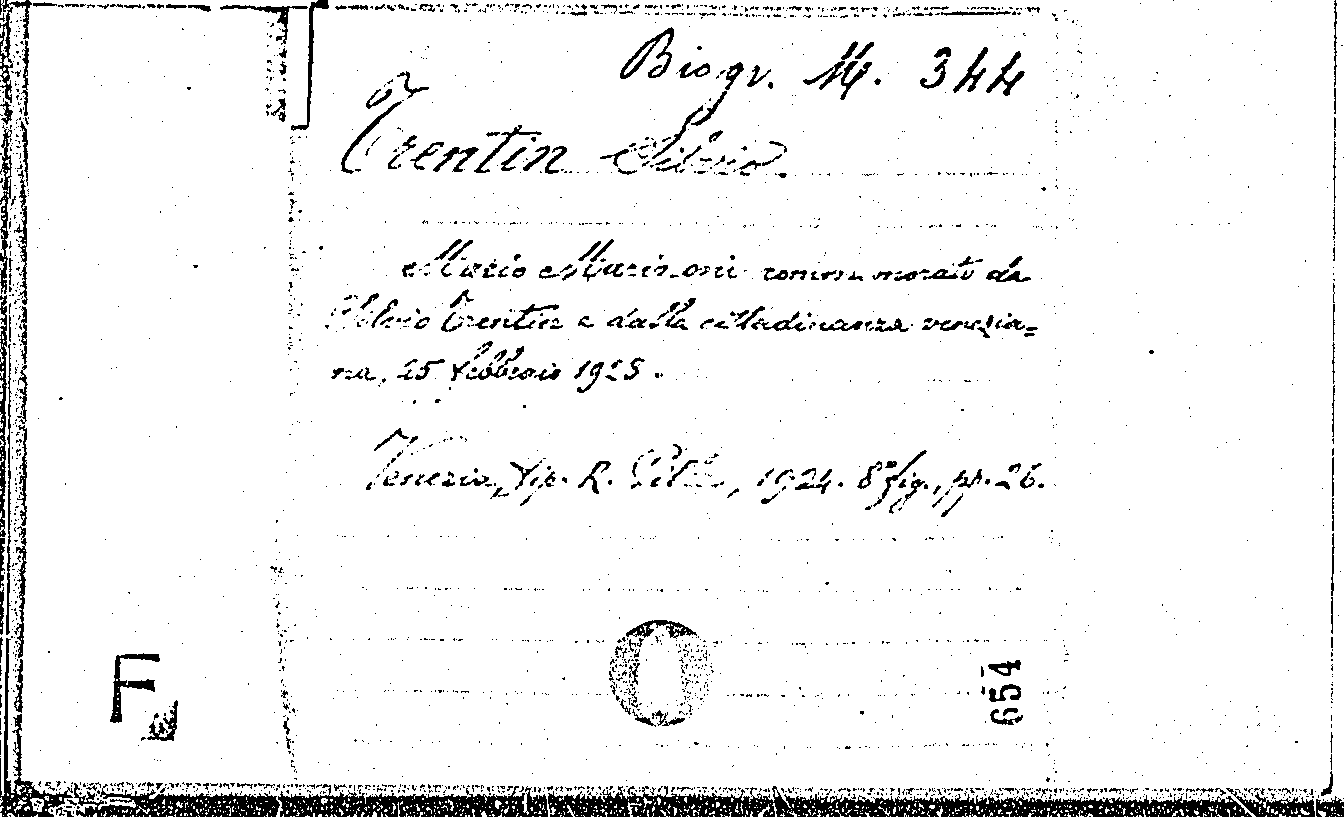 Biogr. M. 344
Trentin Silvio.
Mario Marinoni commemorato da
Silvio Trentin e dalla cittadinanza venezia=
na, 25 febbraio 1925.
Venezia, tip. R. , 1924. 8° fig., pp. 26.
F
654